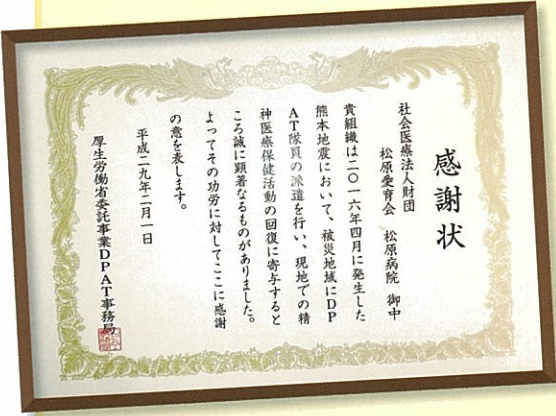 感謝状
社会医療法人財団
松原愛育会 松原病院 御中
貴組織は二〇一六年四月に発生した
熊本地震において、被災地域にDP
AT隊員の派遣を行い、現地での精
神医療保健活動の回復に寄与すると
ころ誠に顕著なるものがありました。
よってその功労に対してここに感謝
の意を表します。
平成二九年二月一日
厚生労働省委託事業DPAT事務局